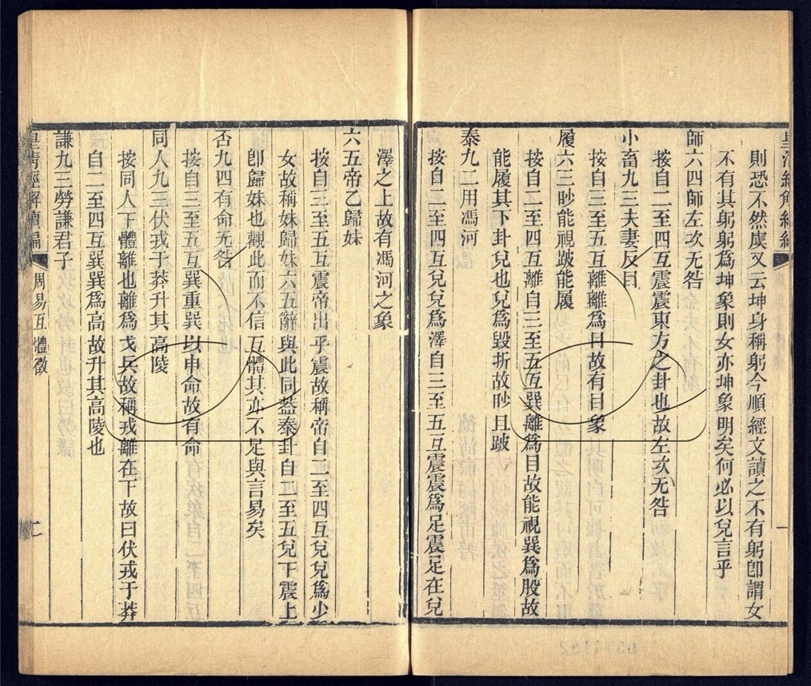 皇清經解續編
則恐不然虞又云坤身稱躬今順經文讀之不有躬卽謂女
不有其躬躬爲坤象則女亦坤象明矣何必以兌言乎
師六四師左次无咎
按自二至四互震震東方之卦也故左次无咎
小畜九三夫妻反目
按自三至五互離離爲目故有目象
履六三眇能視跛能履
按自二至四互離自三至五互巽離爲目故能視巽爲股故
能履其下卦兌也兌爲毀折故眇且跛
泰九二用馮河
按自二至四互兌兌爲澤自三至五互震震爲足震足在兌
澤之上故有馮河之象
六五帝乙歸妹
按自三至五互震帝出乎震故稱帝自二至四互兌兌爲少
女故稱妹歸妹六五辭與此同葢泰卦自二至五兌下震上
卽歸妹也觀此而不信互體其亦不足與言易矣
否九四有命无咎
按自三至五互巽重巽以申命故有命
同人九三伏戎于莽升其高陵
按同人下體離也離爲戈兵故稱戎離在下故曰伏戎于莽
自二至四互巽巽爲高故升其高陵也
謙九三勞謙君子
皇清經解續編
周易互體徵